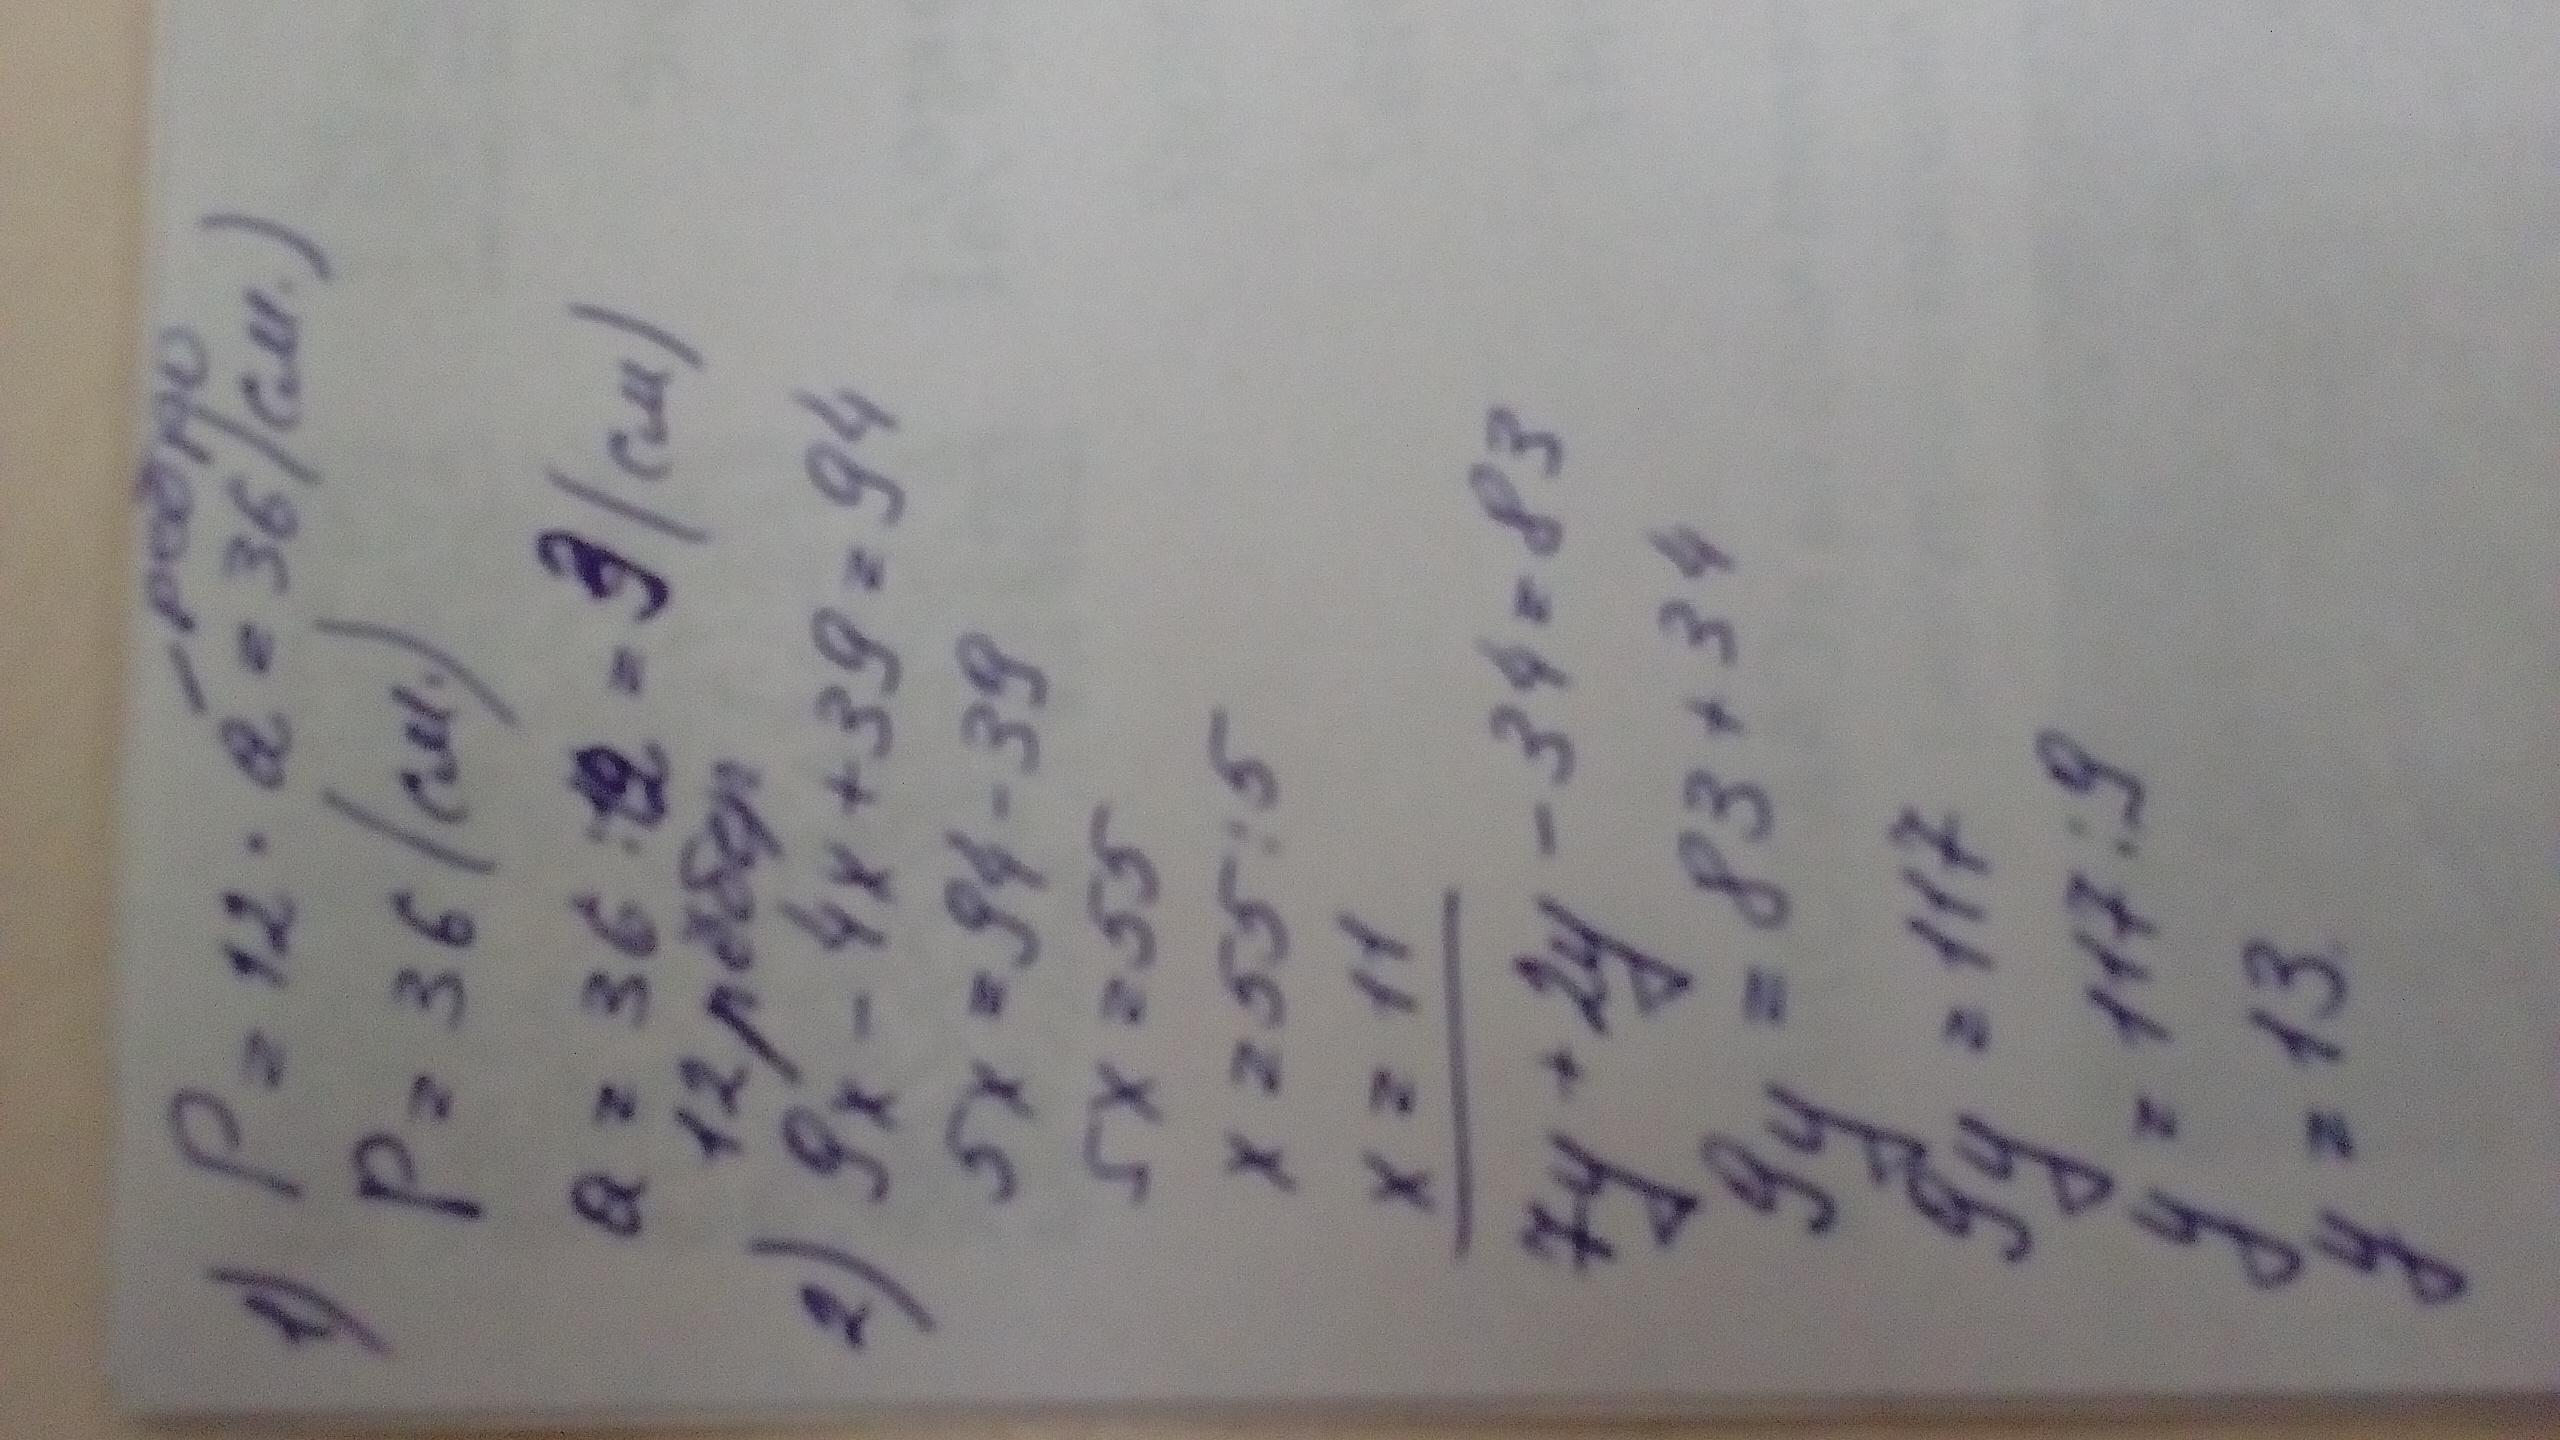 - ребро
1) P = 12 · a = 36 (см.)
P = 36 (см.)
a = 36 : 12 = 3 (см)
12 рёбер
2) 9x - 4x + 39 = 94
5x = 94 - 39
5x = 55
x = 55 : 5
x = 11
7y + 2y - 34 = 83
9y = 83 + 34
9y = 117
y = 117 : 9
y = 13